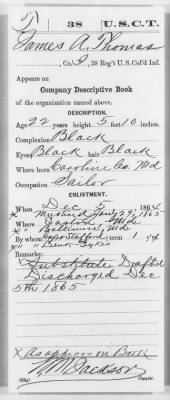 T | 38 | U.S.C.T.
James A. Thomas
, Co. I, 38 Reg't U.S. Col'd Inf.
Appears on
Company Descriptive Book
of the organization named above.
DESCRIPTION.
Age 22 years; height 5 feet 10 inches.
Complexion Black
Eyes Black; hair Black
Where born Caroline Co. Md
Occupation Sailor
ENLISTMENT.
When Dec 5, 1864.
x " Mustered Jany 29, 1865
Where Easton Md
x " Baltimore, Md
By whom Capt Stafford; term y'rs.
x "
Remarks:
Substitute Drafted
Discharged Dec.
5th 1865
x As appears on Roll
Jackson
Copyist.